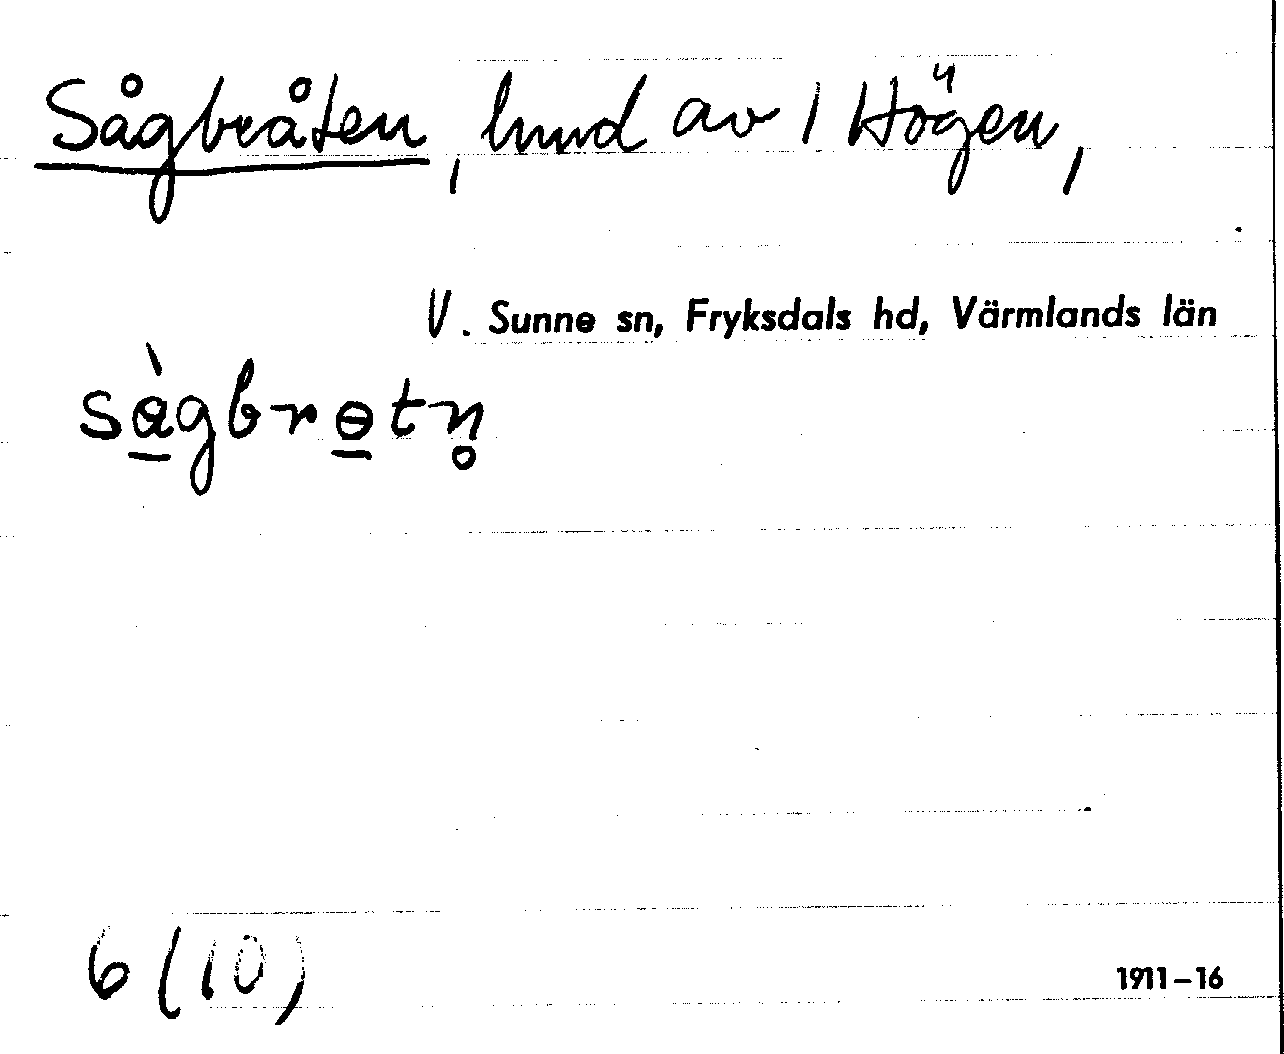 Sågbråten, hmd av 1 Högen⁴,
V. Sunne sn, Fryksdals hd, Värmlands län
sàgbrɵtn̥
6 (10)
1911-16